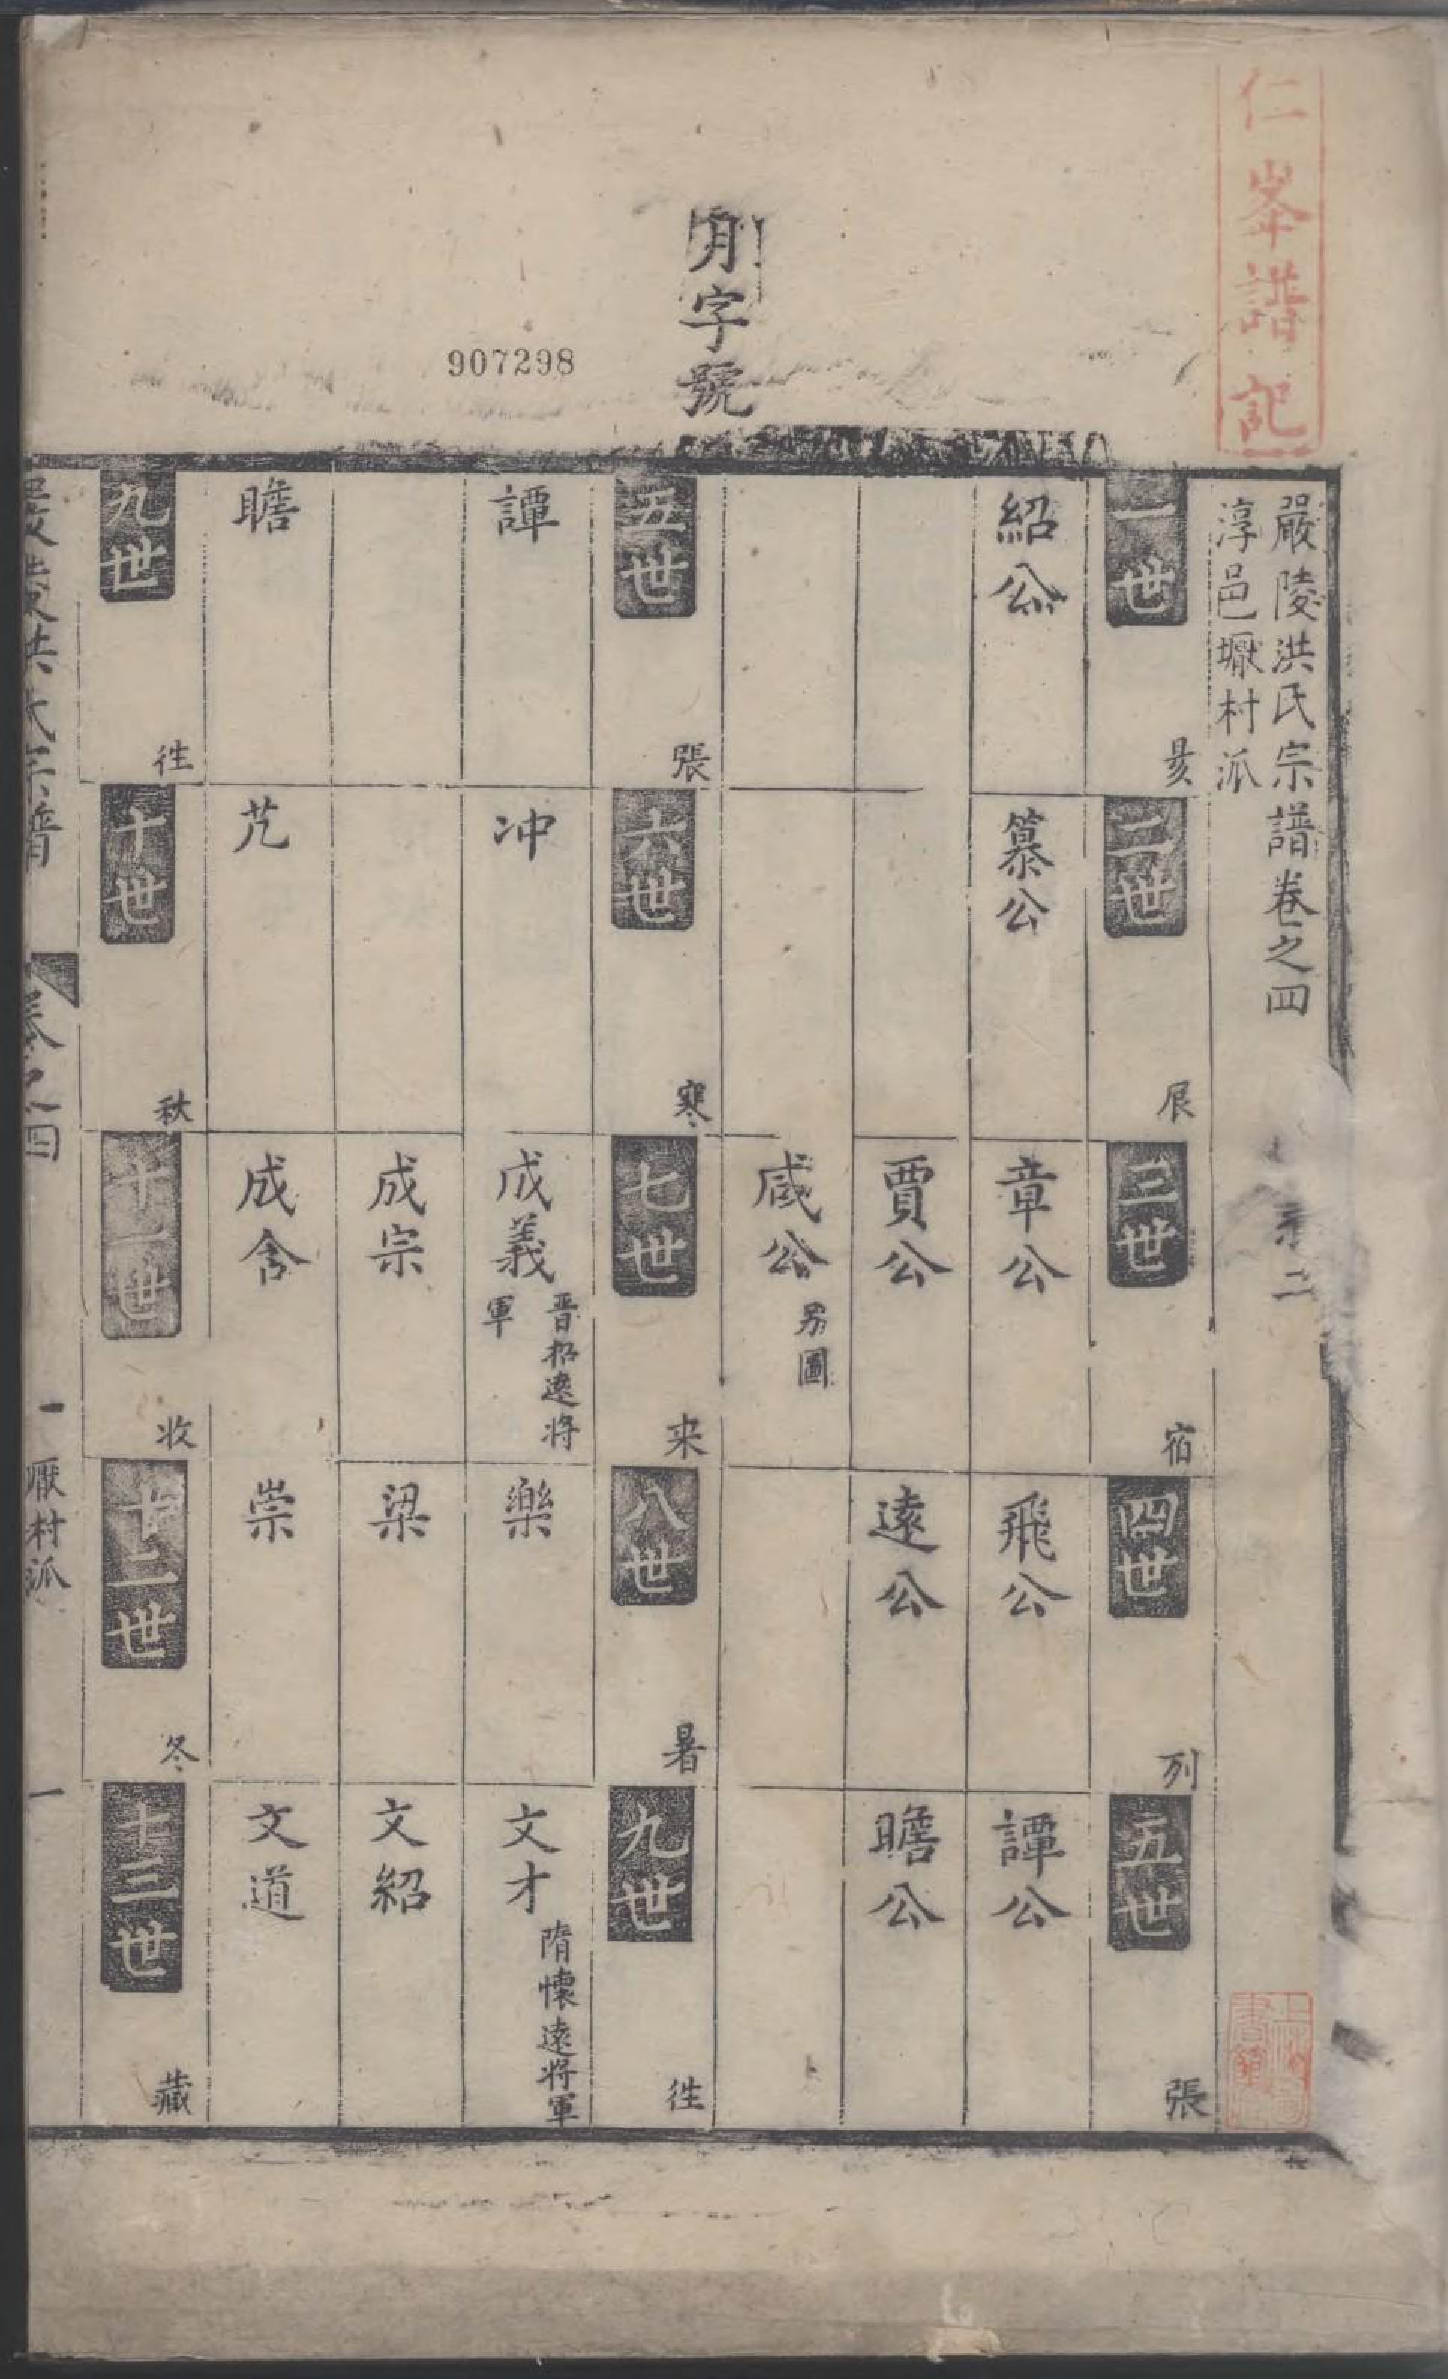 仁峯譜記
月字號
907298
嚴陵洪氏宗譜卷之四
淳邑墩村派
一世 昃
二世 辰
三世 宿
四世 列
五世 張
紹公
慕公
章公
飛公
譚公
賈公
遠公
瞻公
咸公 另圖
五世 張
六世 寒
七世 来
八世 暑
九世 徃
譚
冲
成義 晋招遠将軍
樂
文才 隋懷遠将軍
成宗
梁
文紹
瞻
芃
成含
崇
文道
九世 徃
十世 秋
十一世 收
十二世 冬
十三世 藏
卷之四
一 厫村派
一